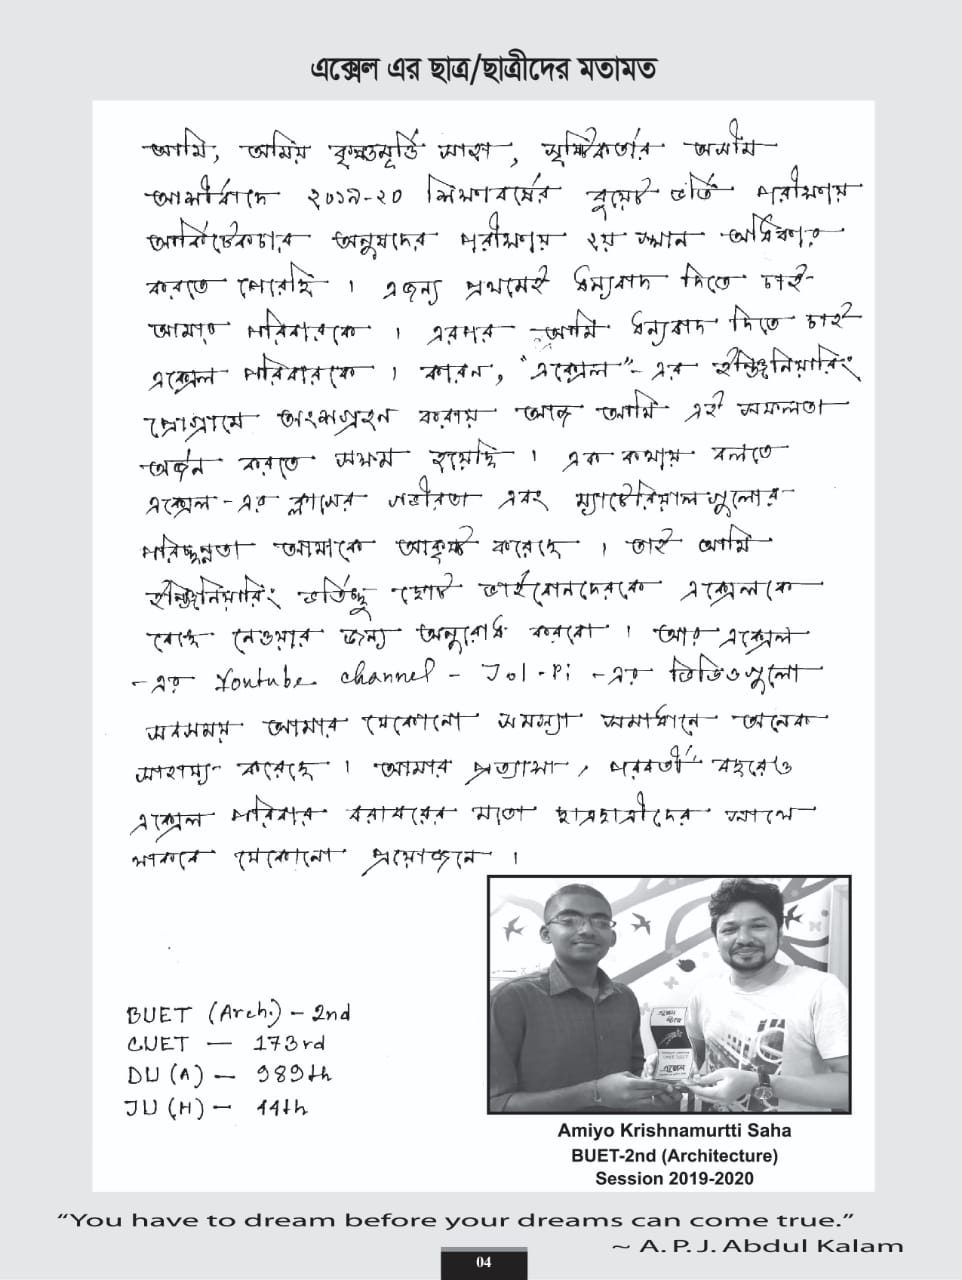 এক্সেল এর ছাত্র/ছাত্রীদের মতামত
আমি, অমিয় কৃষ্ণমূর্তি সাহা, সৃষ্টিকর্তার অসীম
আশীর্বাদে ২০১৯-২০ শিক্ষাবর্ষের বুয়েট ভর্তি পরীক্ষায়
আর্কিটেকচার অনুষদের পরীক্ষায় ২য় স্থান অধিকার
করতে পেরেছি । এজন্য প্রথমেই ধন্যবাদ দিতে চাই
আমার পরিবারকে । এরপর আমি ধন্যবাদ দিতে চাই
এক্সেল পরিবারকে । কারন, "এক্সেল"-এর ইঞ্জিনিয়ারিং
প্রোগ্রামে অংশগ্রহন করায় আজ আমি এই সফলতা
অর্জন করতে সক্ষম হয়েছি । এক কথায় বলতে
এক্সেল-এর ক্লাসের গভীরতা এবং ম্যাটেরিয়ালগুলোর
পরিচ্ছন্নতা আমাকে আকৃষ্ট করেছে । তাই আমি
ইঞ্জিনিয়ারিং ভর্তিচ্ছু ছোট ভাইবোনদেরকে এক্সেলকে
বেছে নেওয়ার জন্য অনুরোধ করবো । আর এক্সেল
-এর Youtube channel - Jol-Pi -এর ভিডিওগুলো
সবসময় আমার যেকোনো সমস্যা সমাধানে অনেক
সাহায্য করেছে । আমার প্রত্যাশা, পরবর্তী বছরেও
এক্সেল পরিবার বরাবরের মতো ছাত্রছাত্রীদের পাশে
থাকবে যেকোনো প্রয়োজনে ।
BUET (Arch.) - 2nd
CUET - 173rd
DU (A) - 989th
JU (H) - 44th
এক্সেল
Amiyo Krishnamurtti Saha
BUET-2nd (Architecture)
Session 2019-2020
“You have to dream before your dreams can come true.”
~ A. P. J. Abdul Kalam
04